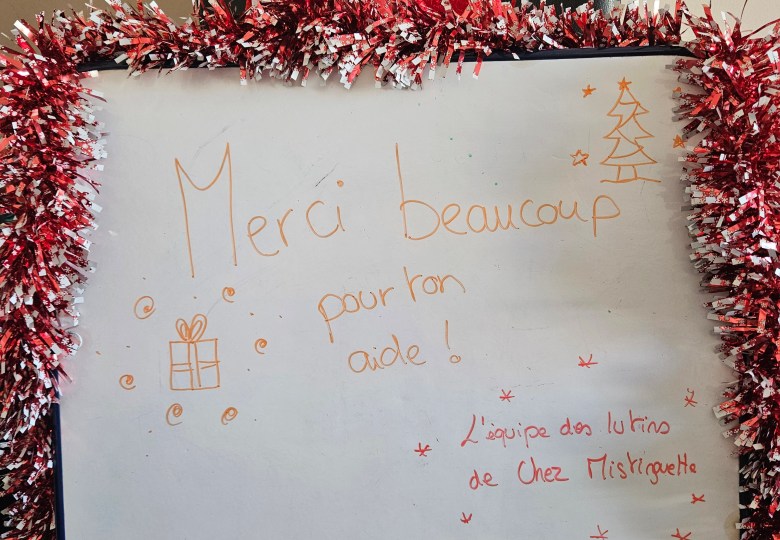 Merci beaucoup
pour ton
aide !
L'équipe des lutins
de Chez Mistinguette